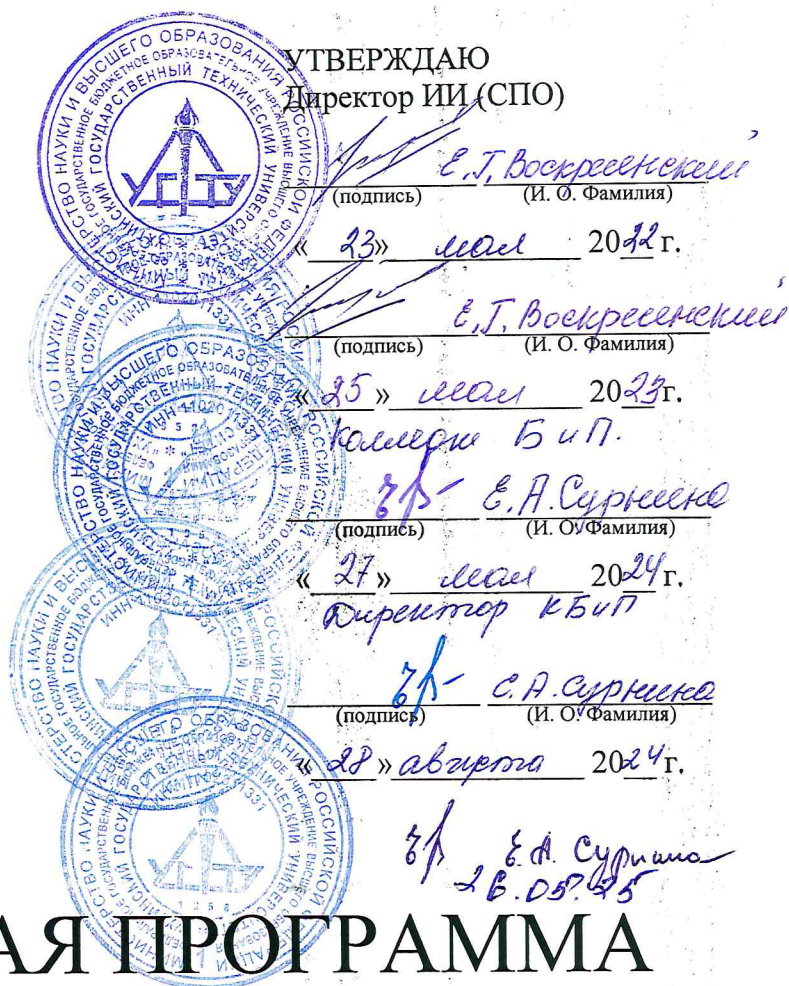 УТВЕРЖДАЮ
Директор ИИ (СПО)
Е.Г. Воскресенский
(подпись) (И. О. Фамилия)
« 23 » мая 2022 г.
Е.Г. Воскресенский
(подпись) (И. О. Фамилия)
« 25 » мая 2023 г.
Колледж БиП.
Е.А. Сурнина
(подпись) (И. О. Фамилия)
« 27 » мая 2024 г.
Директор КБиП
Е.А. Сурнина
(подпись) (И. О. Фамилия)
« 28 » августа 2024 г.
Е.А. Сурнина
26.05.25
АЯ ПРОГРАММА
МИНИСТЕРСТВО НАУКИ И ВЫСШЕГО ОБРАЗОВАНИЯ РОССИЙСКОЙ
ГОСУДАРСТВЕННЫЙ ТЕХНИЧЕСКИЙ УНИВЕРСИТЕТ
УГТУ